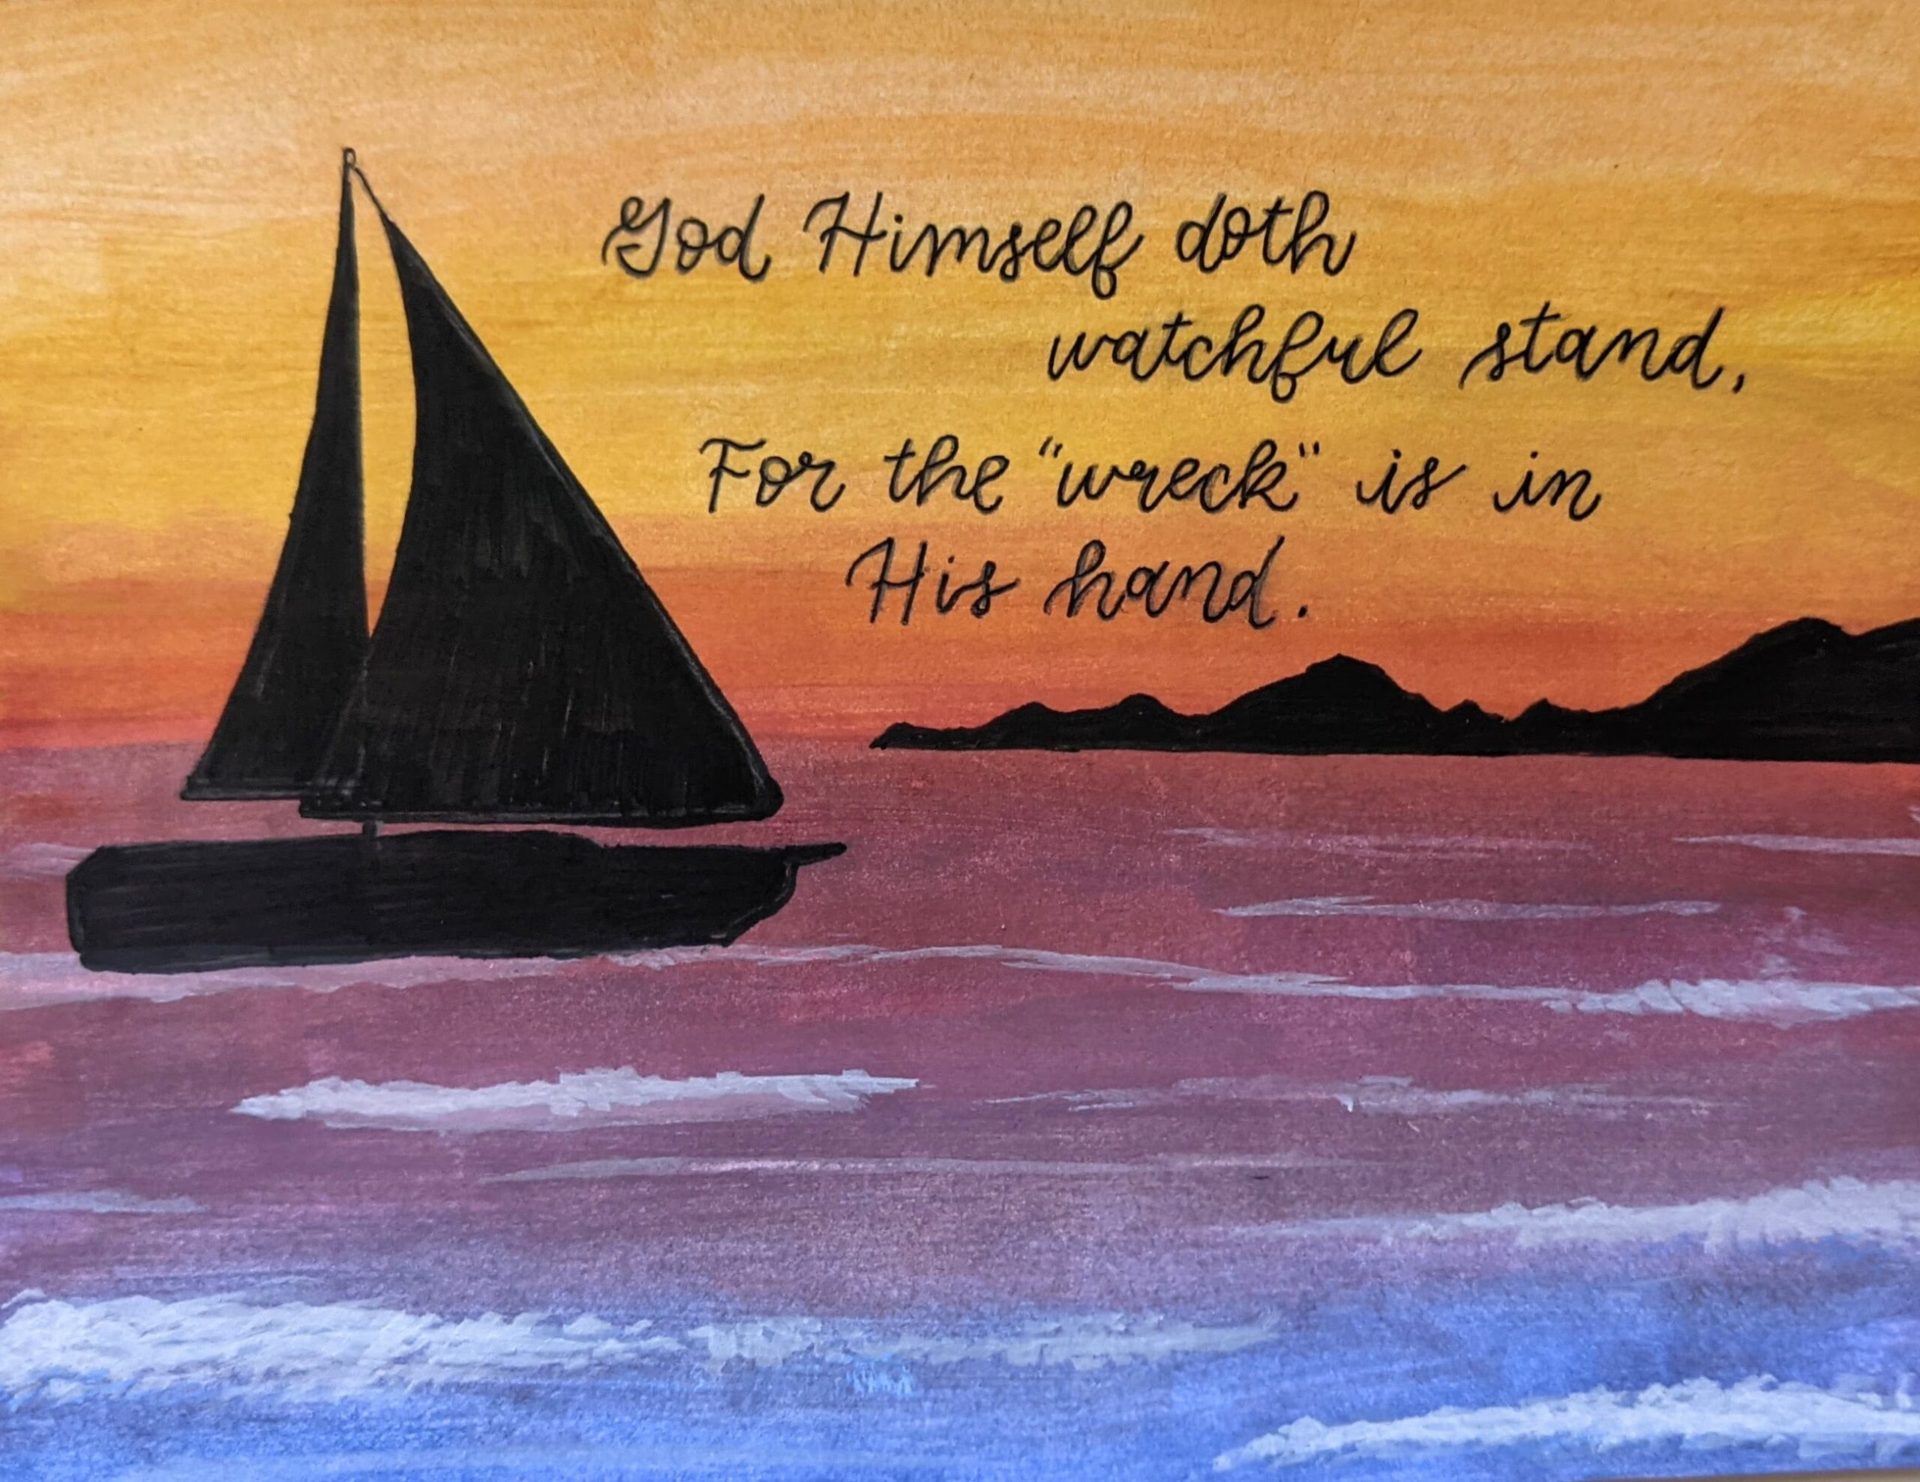 God Himself doth
watchful stand,
For the "wreck" is in
His hand.